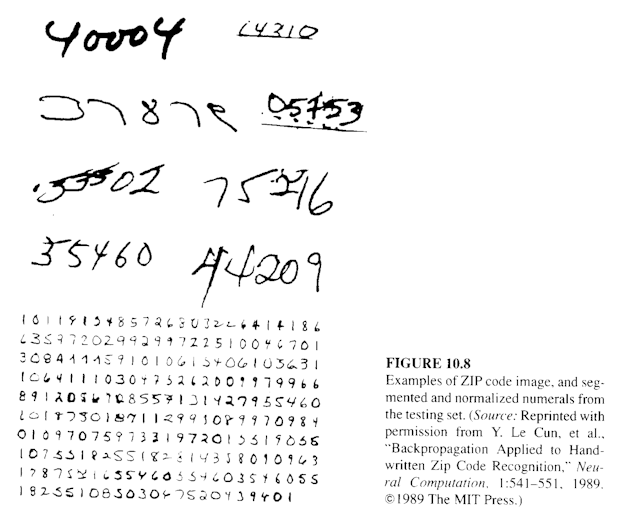 40004 14310
37878 05753
.33502 75216
35460 44209
1011915485726803226414186
6359720299299722510046701
3084111591010615406103631
1064111030475262009979966
8912056708557131427955460
2018750187112993089970984
0109707597331972015519055
1075518255182814358010963
1787521655460554603546055
18255108503047520439401
FIGURE 10.8
Examples of ZIP code image, and seg-
mented and normalized numerals from
the testing set. (Source: Reprinted with
permission from Y. Le Cun, et al.,
"Backpropagation Applied to Hand-
written Zip Code Recognition," Neu-
ral Computation, 1:541–551, 1989.
©1989 The MIT Press.)